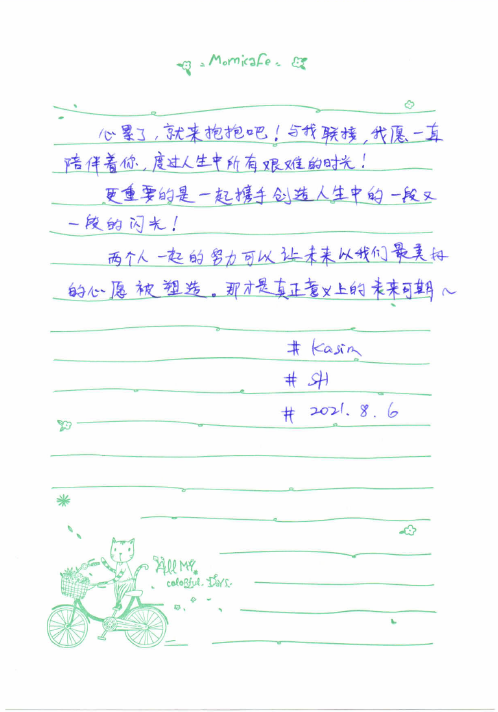 Momicafe
心累了，就来抱抱吧！与我联接，我愿一直
陪伴着你，度过人生中所有艰难的时光！
更重要的是一起携手创造人生中的一段又
一段的闪光！
两个人一起的努力可以让未来以我们最美好
的心愿被塑造。那才是真正意义上的未来可期～
# Kasim
# SH
# 2021.8.6
All My
colorful. Days.